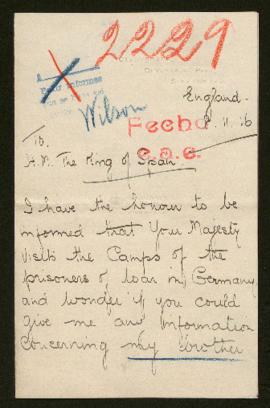 2229
Pour Informer
Wilson
England.
Fecho
11. 16
c.a.c.
To.
H.M. The King of Spain.
I have the honour to be
informed that Your Majesty
visits the Camps of the
prisoners of war in Germany
and wonder if you could
give me any Information
concerning my brother